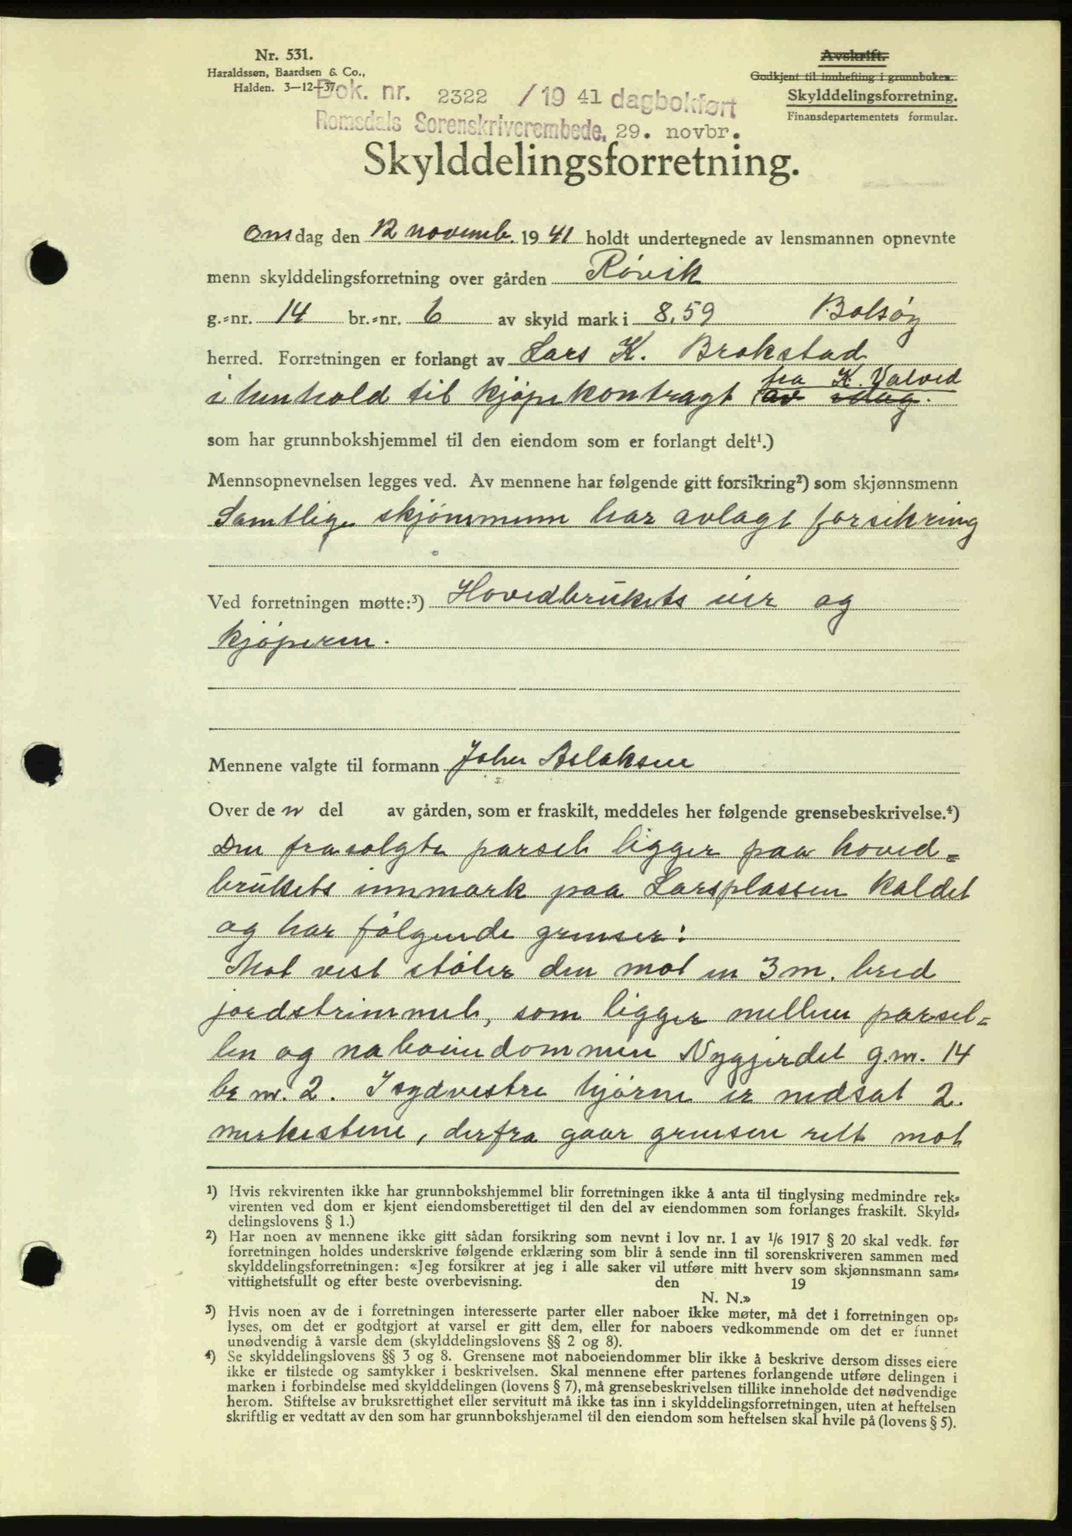 Nr. 531.
Haraldssøn, Baardsen & Co.,
Halden. 3—12—37.
Avskrift.
Godkjent til innhefting i grunnboken.
Skylddelingsforretning.
Finansdepartementets formular.
Dok. nr. 2322 /19 41 dagbokført
Romsdals Sorenskriverembede, 29. novbr.
Skylddelingsforretning.
Onsdag den 12 novemb. 1941 holdt undertegnede av lensmannen opnevnte
menn skylddelingsforretning over gården Røvik
g.=nr. 14 br.=nr. 6 av skyld mark i 8,59 Bolsøy
herred. Forretningen er forlangt av Lars K. Brokstad
fra K. Valved
i henhold til kjøpekontragt av idag.
som har grunnbokshjemmel til den eiendom som er forlangt delt¹.)
Mennsopnevnelsen legges ved. Av mennene har følgende gitt forsikring²) som skjønnsmenn
Samtlige skjønnmenn har avlagt forsikring
Ved forretningen møtte:³) Hovedbrukets eier og
kjøperen.
Mennene valgte til formann John Aslaksen
Over den del av gården, som er fraskilt, meddeles her følgende grensebeskrivelse.⁴)
Den frasolgte parsel ligger paa hoved=
brukets innmark paa Larsplassen kaldet
og har følgende grenser:
Mot vest støter den mot en 3 m. bred
jordstrimmel, som ligger mellem parsel=
len og naboeiendommen Nygjerdet g.nr. 14
br nr. 2. I sydvestre hjørne er nedsat 2.
merkestene, derfra gaar grensen rett mot
¹) Hvis rekvirenten ikke har grunnbokshjemmel blir forretningen ikke å anta til tinglysing medmindre rek=
virenten ved dom er kjent eiendomsberettiget til den del av eiendommen som forlanges fraskilt. Skyld=
delingslovens § 1.)
²) Har noen av mennene ikke gitt sådan forsikring som nevnt i lov nr. 1 av 1/6 1917 § 20 skal vedk. før
forretningen holdes underskrive følgende erklæring som blir å sende inn til sorenskriveren sammen med
skylddelingsforretningen: «Jeg forsikrer at jeg i alle saker vil utføre mitt hverv som skjønnsmann sam=
vittighetsfullt og efter beste overbevisning. den 19
N. N.»
³) Hvis noen av de i forretningen interesserte parter eller naboer ikke møter, må det i forretningen op=
lyses, om det er godtgjort at varsel er gitt dem, eller for naboers vedkommende om det er funnet
unødvendig å varsle dem (skylddelingslovens §§ 2 og 8).
⁴) Se skylddelingslovens §§ 3 og 8. Grensene mot naboeiendommer blir ikke å beskrive dersom disses eiere
ikke er tilstede og samtykker i beskrivelsen. Skal mennene efter partenes forlangende utføre delingen i
marken i forbindelse med skylddelingen (lovens § 7), må grensebeskrivelsen tillike inneholde det nødvendige
herom. Stiftelse av bruksrettighet eller servitutt må ikke tas inn i skylddelingsforretningen, uten at heftelsen
skriftlig er vedtatt av den som har grunnbokshjemmel til den eiendom som heftelsen skal hvile på (lovens § 5).